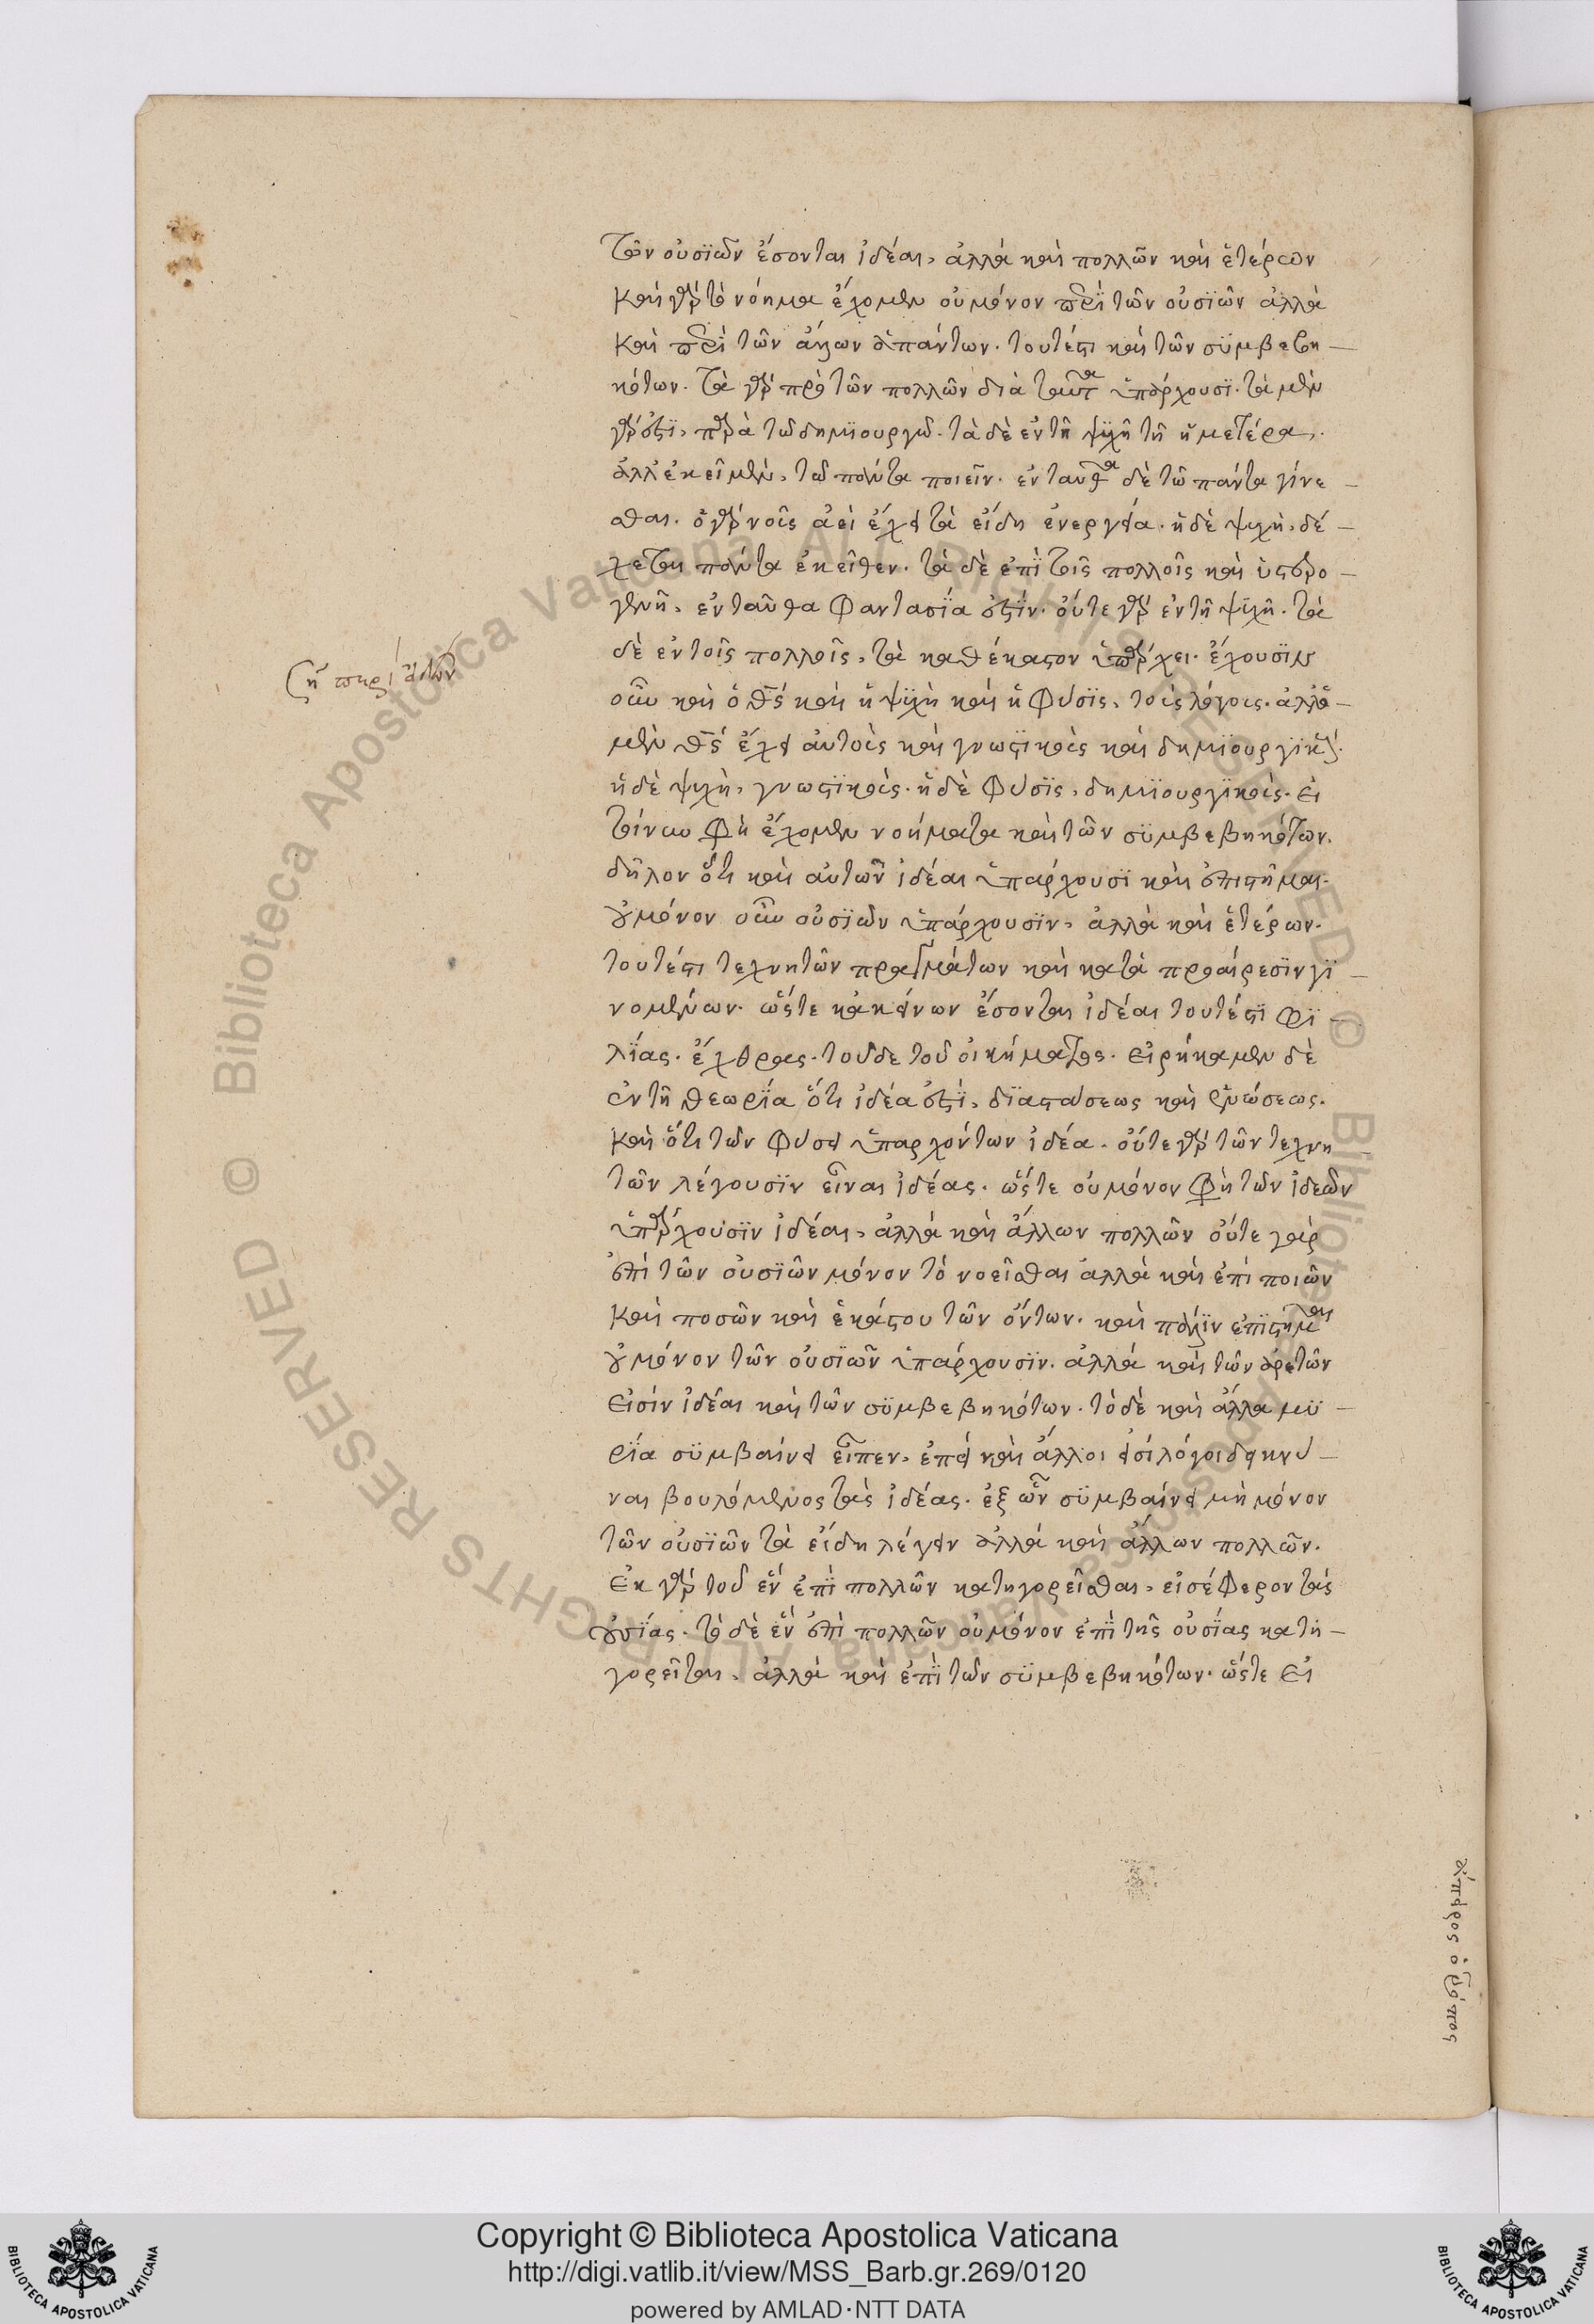 τῶν οὐσϊῶν ἔσονται ἰδέαι, ἀλλὰ καὶ πολλῶν καὶ ἑτέρων
καὶ γὰρ τὸ νόημα ἔχομεν οὐ μόνον περὶ τῶν οὐσϊῶν ἀλλὰ
καὶ περὶ τῶν ἄλλων ἁπάντων. τουτέστι καὶ τῶν σϋμβεβη
κότων. τὰ γὰρ πρὸ τῶν πολλῶν διὰ ταῦτα ὑπάρχουσϊ. τὰ μὲν
γάρ ἐστϊ, παρὰ τῶ δημϊουργῶ. τὰ δὲ ἐν τῆ ψϋχῆ τῆ ἡμετέρα,
ἀλλ' ἐκεῖ μὲν, τῶ πάντα ποιεῖν. ἐνταῦθα δὲ τῶ πάντα γίνε
σθαι. ὁ γὰρ νοῦς ἀεὶ ἔχει τὰ εἴδη ἐνεργεία. ἡ δὲ ψυχὴ, δέ
χεται πάντα ἐκεῖθεν. τὰ δὲ ἐπῒ τοῖς πολλοῖς καὶ ὑστερο
γενῆ, ἐνταῦθα φαντασΐα ἐστΐν. οὔτε γὰρ ἐν τῆ ψϋχῆ. τὰ
δὲ ἐν τοῖς πολλοῖς, τὰ καθέκαστον ὑπάρχει. ἔχουσϊν
οὖν καὶ ὁ θς καὶ ἡ ψϋχὴ καὶ ἡ φύσϊς, τοὺς λόγους. ἀλλ' ὁ
μὲν θς ἔχει αὐτοὺς καὶ γνωστϊκοὺς καὶ δημϊουργϊκούς.
ἡ δὲ ψυχὴ, γνωστϊκούς. ἡ δὲ φύσϊς, δημϊουργϊκούς. εἰ
τοίνυν φη ἔχομεν νοήματα καὶ τῶν σϋμβεβηκότων.
δῆλον ὅτι καὶ αὐτῶν ἰδέαι ὑπάρχουσϊ καὶ ἐπιστῆμαι.
οὐ μόνον οὖν οὐσϊῶν ὑπάρχουσϊν, ἀλλὰ καὶ ἑτέρων.
τουτέστι τεχνητῶν πραγμάτων καὶ κατὰ προαίρεσϊν γϊ
νομένων. ὥστε κἀκείνων ἔσονται ἰδέαι τουτέστϊ φϊ
λΐας. ἔχθρας. τοῦδε τοῦ οἰκήματος. εἰρήκαμεν δὲ
ἐν τῆ θεωρΐα ὅτι ἰδέα ἐστΐ, δϊαστάσεως καὶ ἑνώσεως.
καὶ ὅτι τῶν φύσει ὑπαρχόντων ἰδέα. οὔτε γὰρ τῶν τεχνη
τῶν λέγουσϊν εἶναι ἰδέας. ὥστε οὐ μόνον φὴ τῶν ἰδεῶν
ὑπάρχουσϊν ἰδέαι, ἀλλὰ καὶ ἄλλων πολλῶν οὔτε γὰρ
ἐπὶ τῶν οὐσϊῶν μόνον τὸ νοεῖσθαι ἀλλὰ καὶ ἐπὶ ποιῶν
καὶ ποσῶν καὶ ἑκάστου τῶν ὄντων. καὶ πάλϊν ἐπϊστῆμαι
οὐ μόνον τῶν οὐσϊῶν ὑπάρχουσϊν. ἀλλὰ καὶ τῶν ἀρετῶν
εἰσὶν ἰδέαι καὶ τῶν σϋμβεβηκότων. τὸ δὲ καὶ ἄλλα μϋ
ρΐα σϋμβαίνει εἶπεν, ἐπεὶ καὶ ἄλλοι εἰσὶ λόγοι δεικνύ
ναι βουλόμενος τὰς ἰδέας. ἐξ ὧν σϋμβαίνει μὴ μόνον
τῶν οὐσϊῶν τὰ εἴδη λέγειν ἀλλὰ καὶ ἄλλων πολλῶν.
ἐκ γὰρ τοῦ ἓν ἐπῒ πολλῶν κατηγορεῖσθαι, εἰσέφερον τὰς
οὐσΐας. τὸ δὲ ἓν ἐπὶ πολλῶν οὐ μόνον ἐπῒ τῆς οὐσΐας κατη
γορεῖται, ἀλλὰ καὶ ἐπῒ τῶν σϋμβεβηκότων. ὥστε εἰ
ἄπειρος ὁ τρόπος
Copyright © Biblioteca Apostolica Vaticana
http://digi.vatlib.it/view/MSS_Barb.gr.269/0120
powered by AMLAD·NTT DATA
BIBLIOTECA APOSTOLICA VATICANA
BIBLIOTECA APOSTOLICA VATICANA
Biblioteca Apostolica Vaticana ALL RIGHTS RESERVED © Biblioteca Apostolica Vaticana ALL RIGHTS RESERVED ©